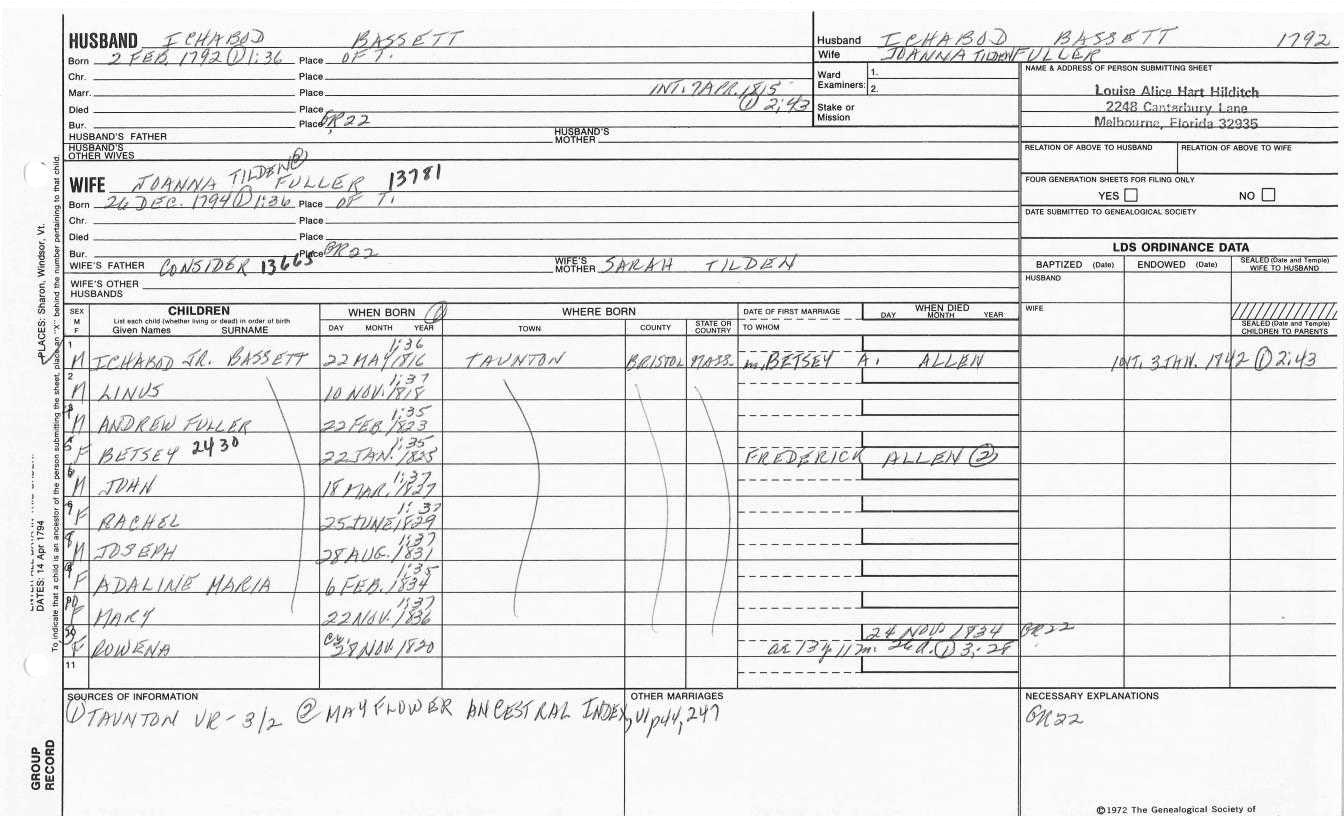 HUSBAND ICHABOD BASSETT
Born 2 FEB. 1792 ① 1:36 Place OF T.
Chr. Place
Marr. Place INT. 7 APR. 1815
① 2:43
Died Place
Bur. Place GR22
HUSBAND'S FATHER HUSBAND'S MOTHER
HUSBAND'S OTHER WIVES
Husband ICHABOD BASSETT 1792
Wife JOANNA TILDEN FULLER
Ward Examiners: 1.
2.
Stake or Mission
NAME & ADDRESS OF PERSON SUBMITTING SHEET
Louise Alice Hart Hilditch
2248 Canterbury Lane
Melbourne, Florida 32935
RELATION OF ABOVE TO HUSBAND RELATION OF ABOVE TO WIFE
FOUR GENERATION SHEETS FOR FILING ONLY
YES NO
DATE SUBMITTED TO GENEALOGICAL SOCIETY
WIFE JOANNA TILDEN ② FULLER 13781
Born 26 DEC. 1794 ① 1:36 Place OF T.
Chr. Place
Died Place
Bur. Place GR22
WIFE'S FATHER CONSIDER 13665 WIFE'S MOTHER SARAH TILDEN
WIFE'S OTHER HUSBANDS
LDS ORDINANCE DATA
BAPTIZED (Date) ENDOWED (Date) SEALED (Date and Temple) WIFE TO HUSBAND
HUSBAND
WIFE
SEALED (Date and Temple) CHILDREN TO PARENTS
SEX M F
CHILDREN
List each child (whether living or dead) in order of birth
Given Names SURNAME
WHEN BORN ①
DAY MONTH YEAR
WHERE BORN
TOWN COUNTY STATE OR COUNTRY
DATE OF FIRST MARRIAGE
TO WHOM
WHEN DIED
DAY MONTH YEAR
1 M ICHABOD JR. BASSETT 22 MAY 1816 1:36 TAUNTON BRISTOL MASS. m. BETSEY A. ALLEN INT. 3 JAN. 1742 ① 2:43
2 M LINUS 10 NOV. 1818 1:37
M ANDREW FULLER 22 FEB. 1823 1:35
F BETSEY 2430 22 JAN. 1825 1:35 FREDERICK ALLEN ②
M JOHN 18 MAR. 1827 1:37
F RACHEL 25 JUNE 1829 1:37
M JOSEPH 28 AUG. 1831 1:37
F ADALINE MARIA 6 FEB. 1834 1:35
F MARY 22 NOV. 1836 1:37
F ROWENA 28 NOV. 1820 24 NOV. 1834 GR22
ae 13y 11m. 26d. ① 3:28
11
SOURCES OF INFORMATION
① TAUNTON VR - 3/2 ② MAYFLOWER ANCESTRAL INDEX, v1 p44, 247
OTHER MARRIAGES
NECESSARY EXPLANATIONS
GR22
©1972 The Genealogical Society of
PLACES: Sharon, Windsor, Vt.
DATES: 14 Apr 1794
To indicate that a child is an ancestor of the person submitting the sheet, place an "X" behind the number pertaining to that child.
GROUP RECORD